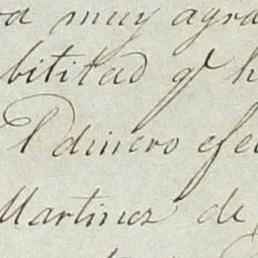 muy agra
bilitad q^e h
El dinero efe
Martinez de